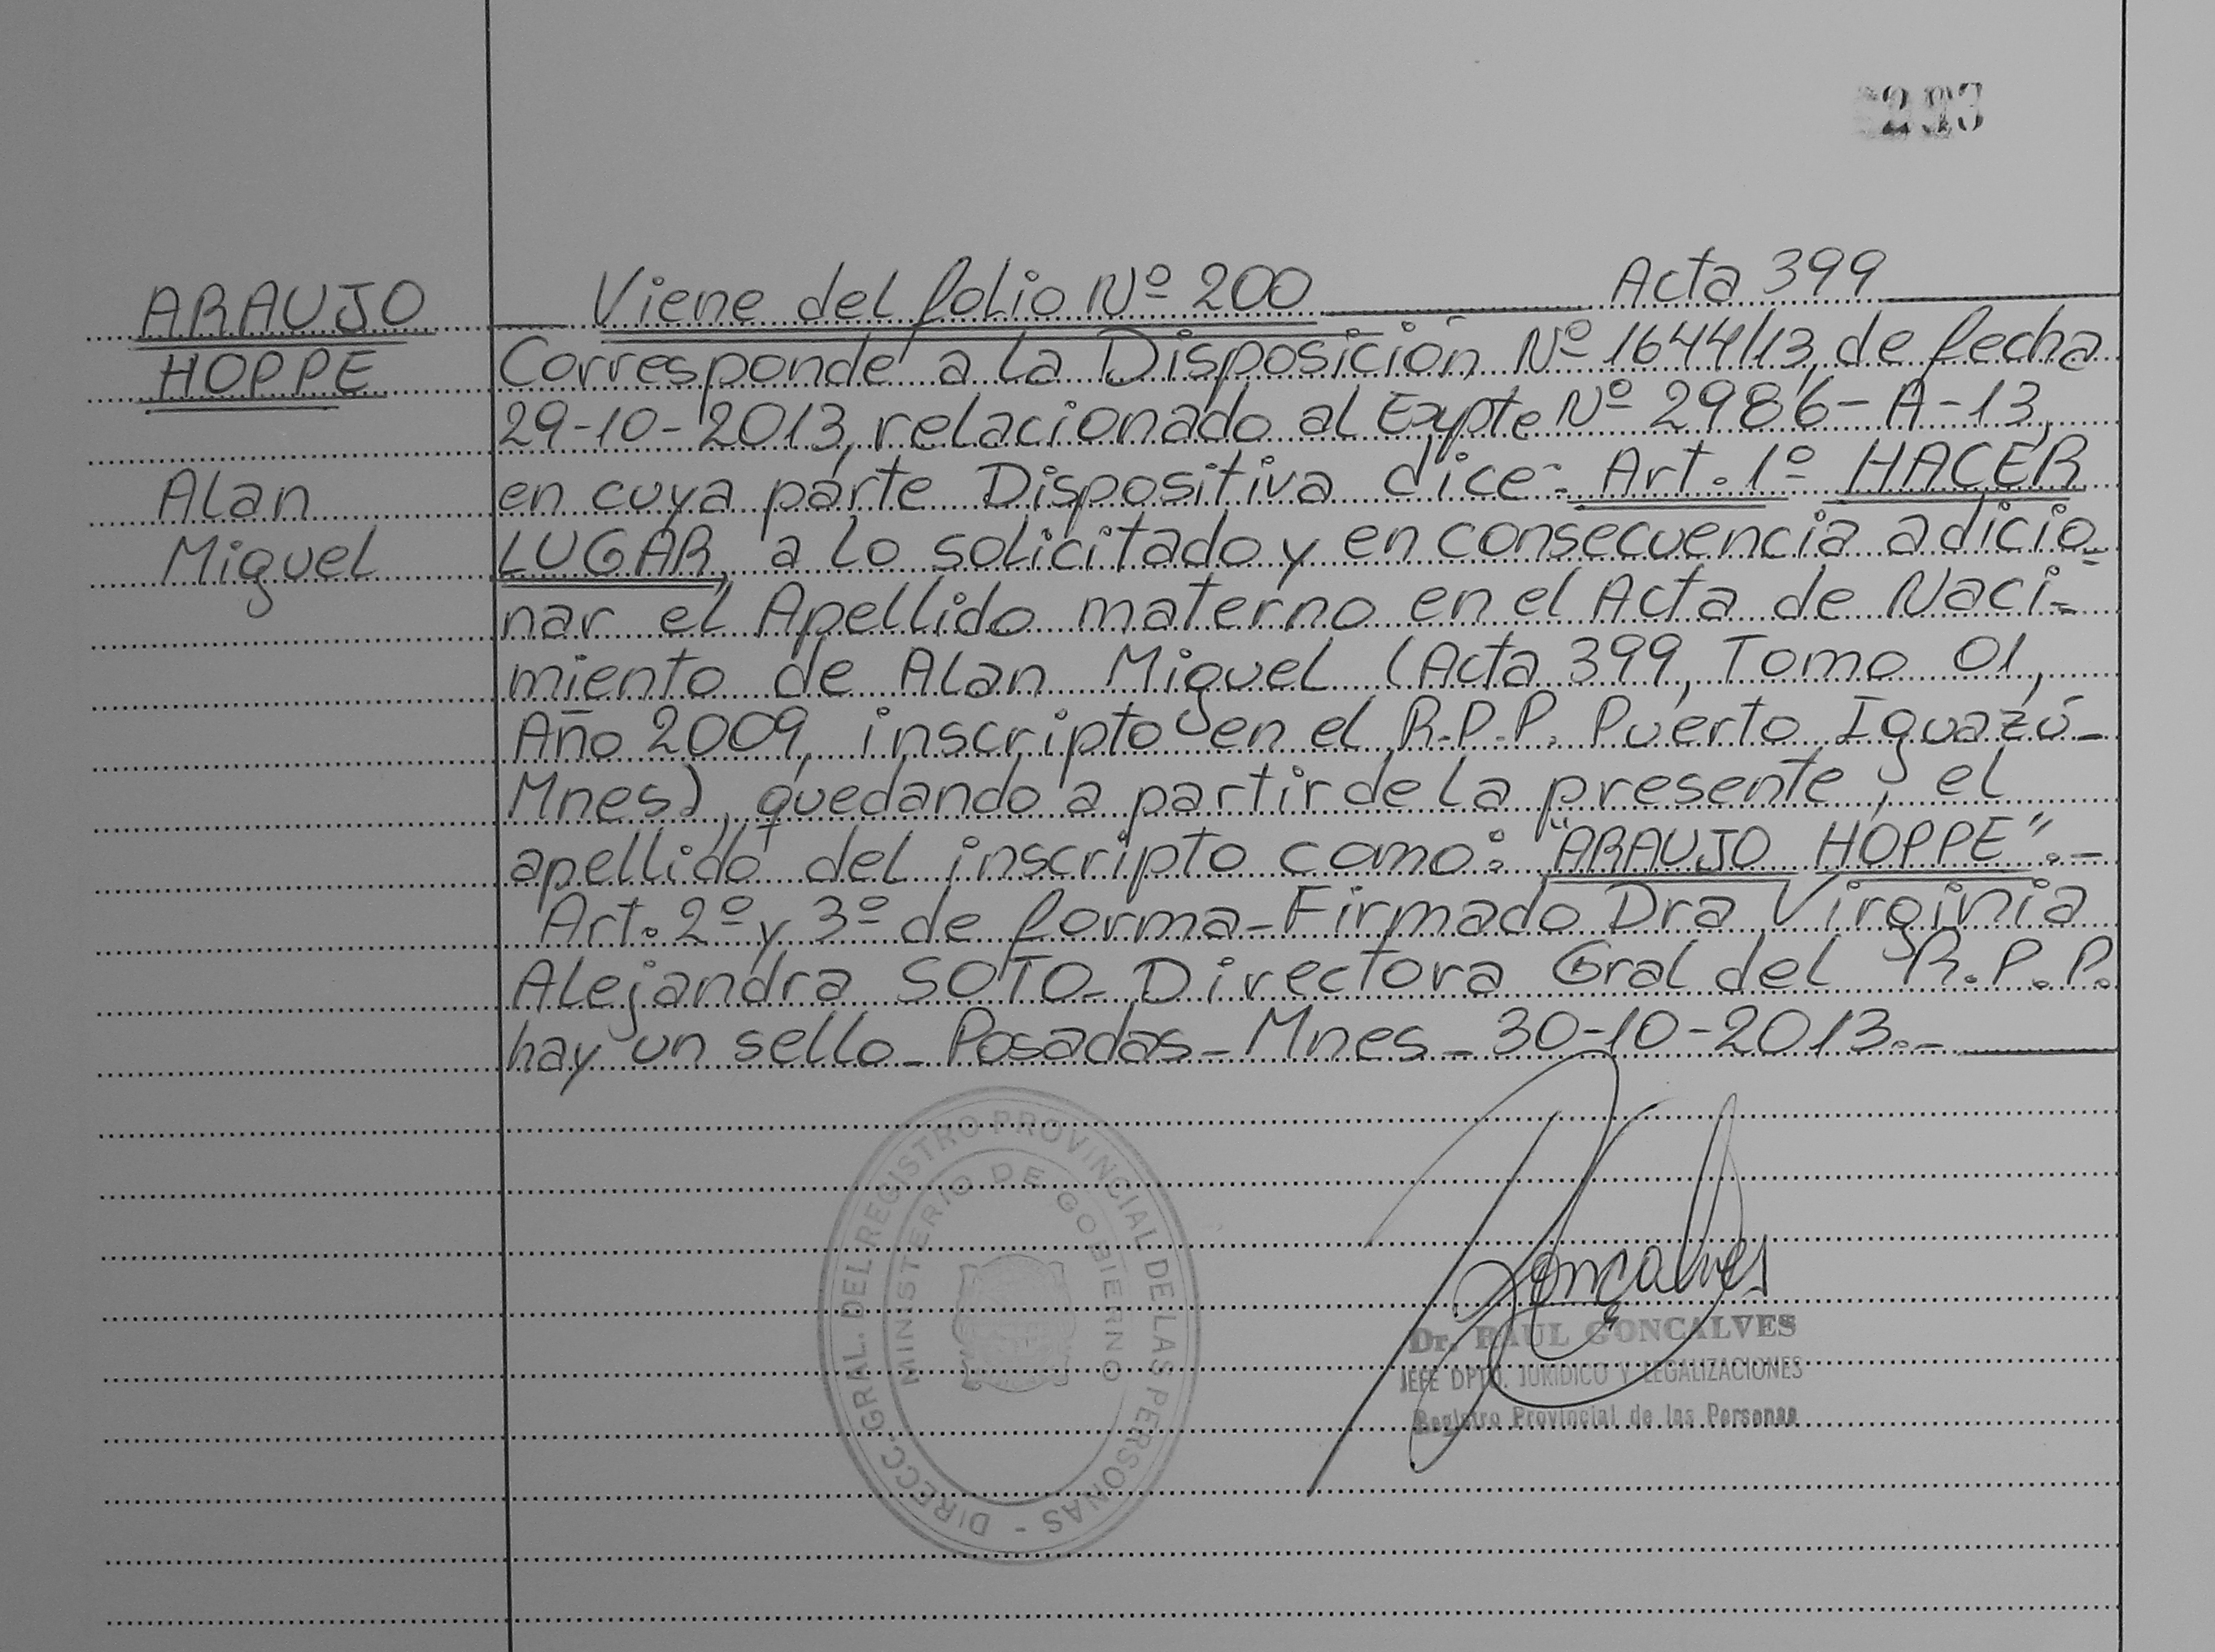 293
ARAUJO
HOPPE
Alan
Miguel
Viene del folio Nº 200 Acta 399
Corresponde a la Disposición Nº 1644/13, de fecha
29-10-2013, relacionado al Expte Nº 2986-A-13,
en cuya parte Dispositiva dice: Art. 1º HACER
LUGAR, a lo solicitado y en consecuencia adicio-
nar el Apellido materno en el Acta de Naci-
miento de Alan Miguel (Acta 399, Tomo 01,
Año 2009, inscripto en el R.P.P. Puerto Iguazú-
Mnes), quedando a partir de la presente, el
apellido del inscripto como: "ARAUJO HOPPE".-
Art. 2º y 3º de forma-Firmado Dra Virginia
Alejandra SOTO- Directora Gral del R.P.P.
hay un sello- Posadas- Mnes- 30-10-2013.-
DIRECC. GRAL. DEL REGISTRO PROVINCIAL DE LAS PERSONAS -
MINISTERIO DE GOBIERNO
Goncalves
Dr. RAUL GONCALVES
JEFE DPTO. JURIDICO Y LEGALIZACIONES
Registro Provincial de las Personas